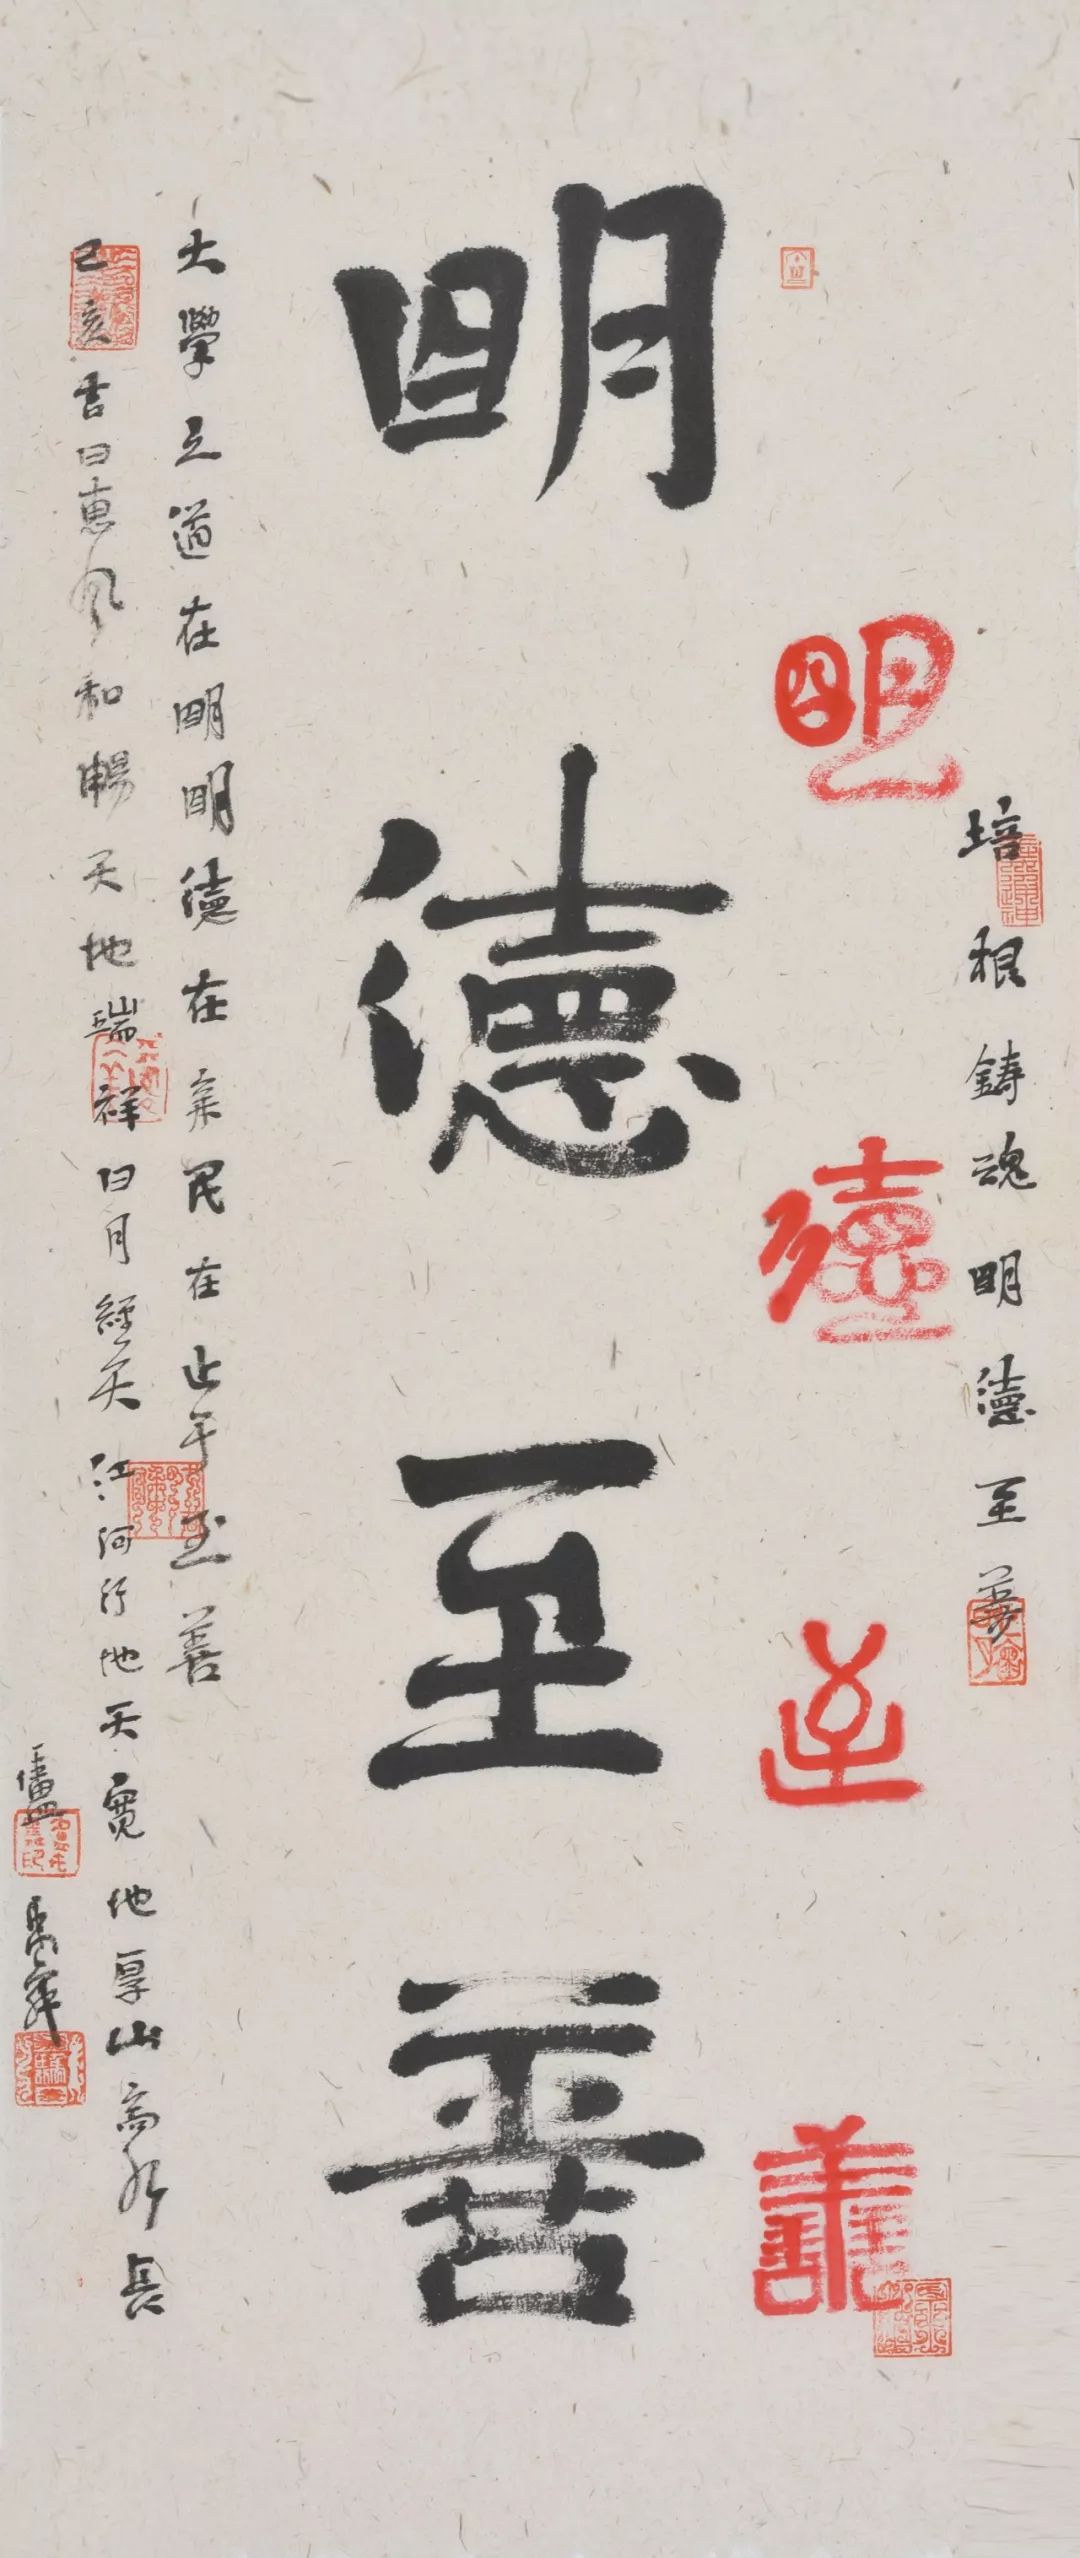 培根鑄魂明德至善
明德至善
明德至善
大學之道在明明德在亲民在止于至善
己亥吉日惠风和暢天地瑞祥日月經天江河行地天寬地厚山高水長
盧禹舜